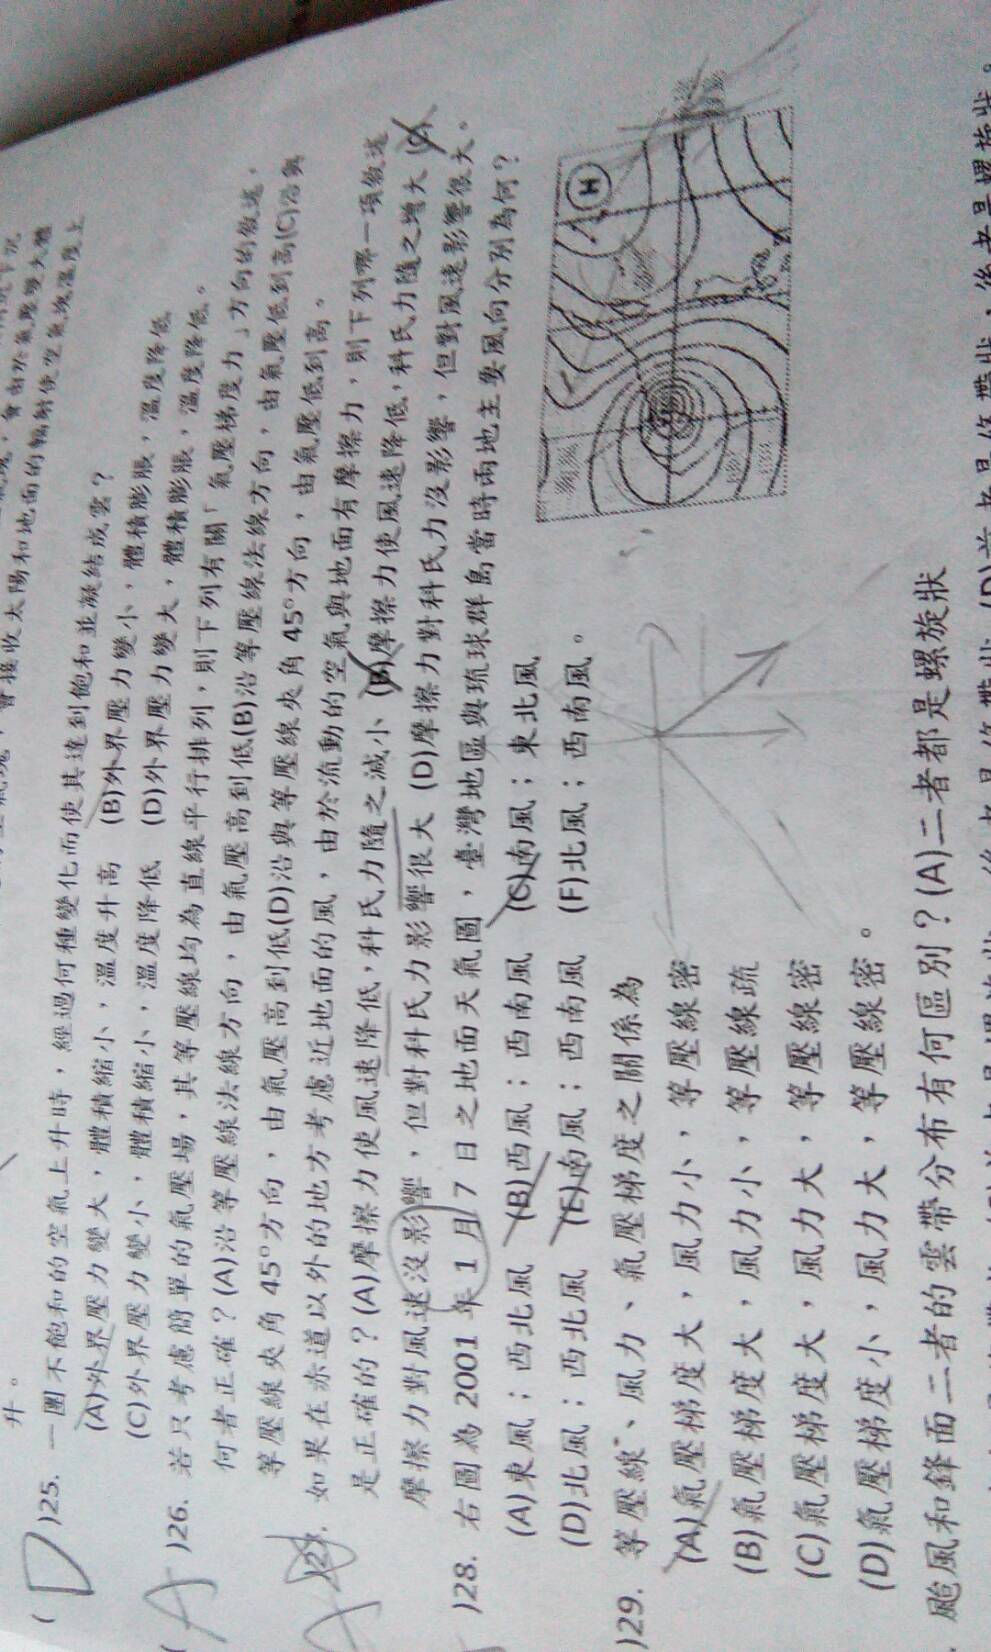 升。
)25. 一團不飽和的空氣上升時，經過何種變化而使其達到飽和並凝結成雲？
(A)外界壓力變大，體積縮小，溫度升高 (B)外界壓力變小，體積膨脹，溫度降低
(C)外界壓力變小，體積縮小，溫度降低 (D)外界壓力變大，體積膨脹，溫度降低。
( D
)26. 若只考慮簡單的氣壓場，其等壓線均為直線平行排列，則下列有關「氣壓梯度力」方向的敘述，
何者正確？(A)沿等壓線法線方向，由氣壓高到低(B)沿等壓線法線方向，由氣壓低到高(C)沿與
等壓線夾角 45°方向，由氣壓高到低(D)沿與等壓線夾角 45°方向，由氣壓低到高。
( A
27. 如果在赤道以外的地方考慮近地面的風，由於流動的空氣與地面有摩擦力，則下列哪一項敘述
是正確的？(A)摩擦力使風速降低，科氏力隨之減小 (B)摩擦力使風速降低，科氏力隨之增大 (C)
摩擦力對風速沒影響，但對科氏力影響很大 (D)摩擦力對科氏力沒影響，但對風速影響很大。
A
)28. 右圖為 2001 年 1 月 7 日之地面天氣圖，臺灣地區與琉球群島當時兩地主要風向分別為何？
(A)東風；西北風 (B)西風；西南風 (C)南風；東北風
(D)北風；西北風 (E)南風；西南風 (F)北風；西南風。
H
)29. 等壓線、風力、氣壓梯度之關係為
(A)氣壓梯度大，風力小，等壓線密
(B)氣壓梯度大，風力小，等壓線疏
(C)氣壓梯度大，風力大，等壓線密
(D)氣壓梯度小，風力大，等壓線密。
颱風和鋒面二者的雲帶分布有何區別？(A)二者都是螺旋狀